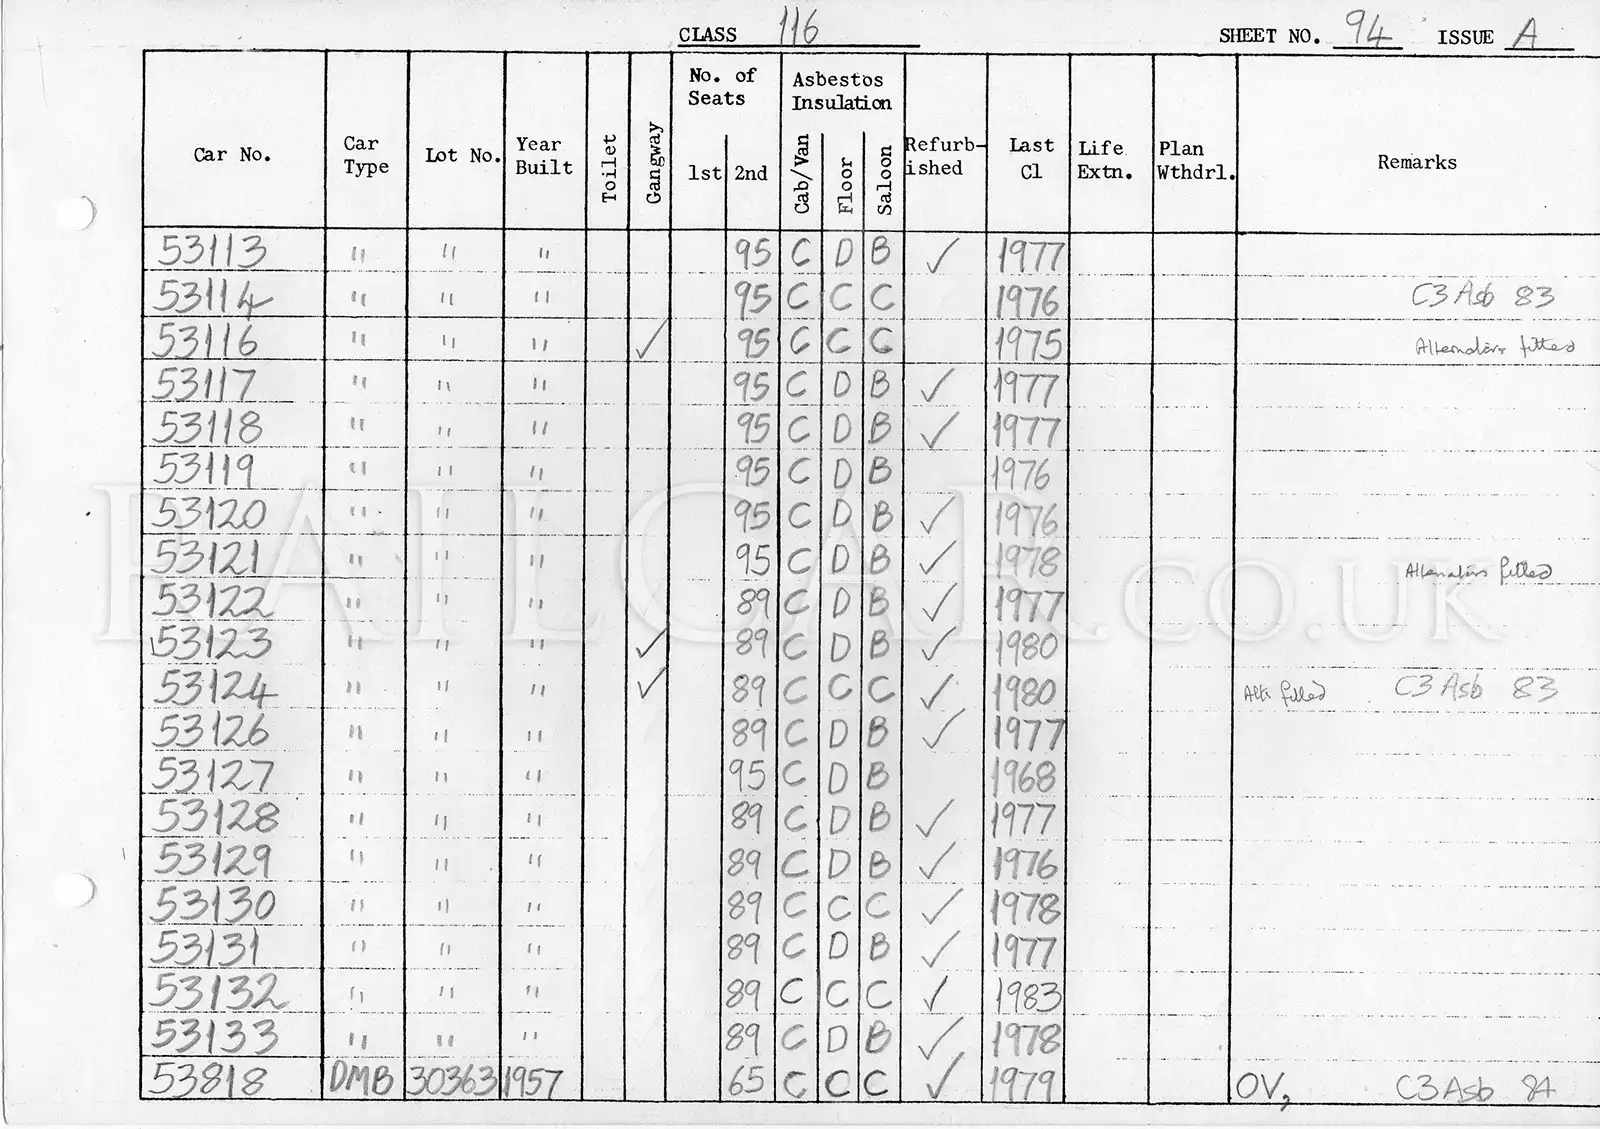 CLASS 116 SHEET NO. 94 ISSUE A
Car No. Car Type Lot No. Year Built Toilet Gangway No. of Seats 1st 2nd Asbestos Insulation Cab/Van Floor Saloon Refurb-ished Last Cl Life Extn. Plan Wthdrl. Remarks
53113 " " " 95 C D B ✓ 1977
53114 " " " 95 C C C 1976 C3 Asb 83
53116 " " " ✓ 95 C C C 1975 Alternators fitted
53117 " " " 95 C D B ✓ 1977
53118 " " " 95 C D B ✓ 1977
53119 " " " 95 C D B 1976
53120 " " " 95 C D B ✓ 1976
53121 " " " 95 C D B ✓ 1978 Alternators fitted
53122 " " " 89 C D B ✓ 1977
53123 " " " ✓ 89 C D B ✓ 1980
53124 " " " ✓ 89 C C C ✓ 1980 Alts fitted C3 Asb 83
53126 " " " 89 C D B ✓ 1977
53127 " " " 95 C D B 1968
53128 " " " 89 C D B ✓ 1977
53129 " " " 89 C D B ✓ 1976
53130 " " " 89 C C C ✓ 1978
53131 " " " 89 C D B ✓ 1977
53132 " " " 89 C C C ✓ 1983
53133 " " " 89 C D B ✓ 1978
53818 DMB 30363 1957 65 C C C ✓ 1979 OV, C3 Asb 84
RAILCAR.CO.UK